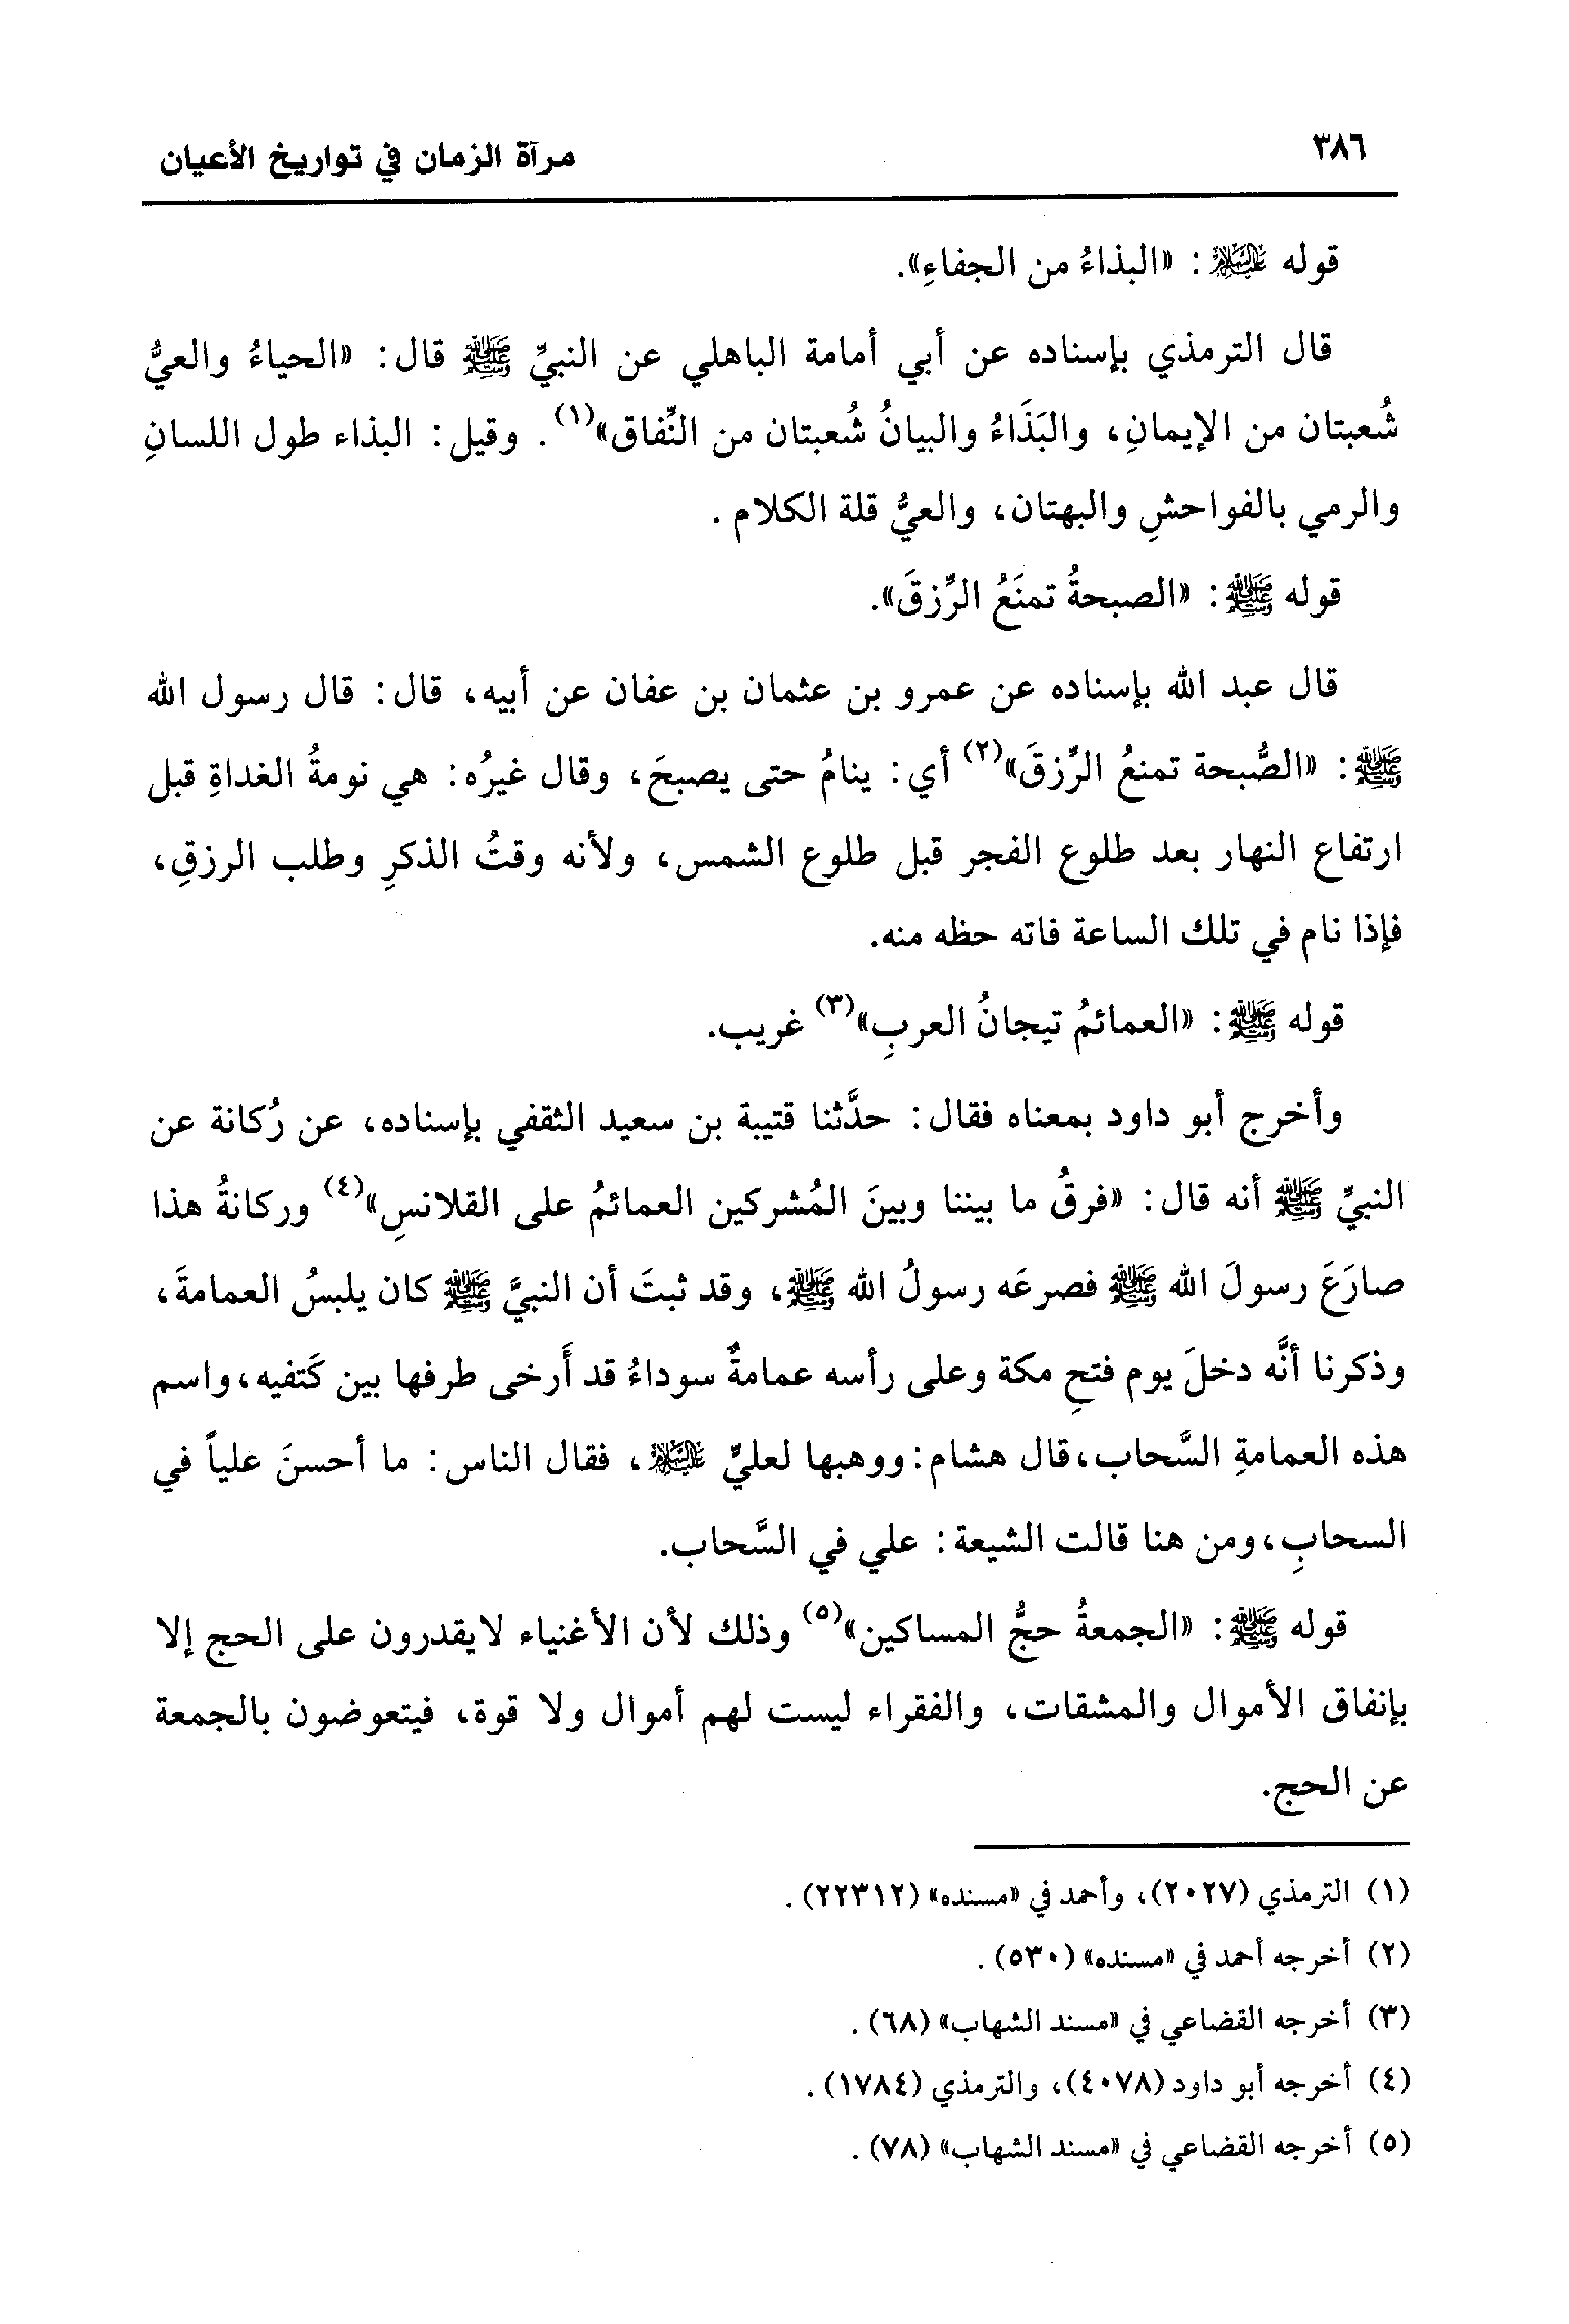 ٣٨٦
مرآة الزمان في تواريخ الأعيان
قوله عليه السلام: «البذاءُ من الجفاءِ».
قال الترمذي بإسناده عن أبي أمامة الباهلي عن النبيِّ ﷺ قال: «الحياءُ والعيُّ
شُعبتان من الإيمانِ، والبَذَاءُ والبيانُ شُعبتان من النِّفاق»(١). وقيل: البذاء طول اللسانِ
والرمي بالفواحشِ والبهتان، والعيُّ قلة الكلام.
قوله ﷺ: «الصبحةُ تمنَعُ الرِّزقَ».
قال عبد الله بإسناده عن عمرو بن عثمان بن عفان عن أبيه، قال: قال رسول الله
ﷺ: «الصُّبحة تمنعُ الرِّزقَ»(٢) أي: ينامُ حتى يصبحَ، وقال غيرُه: هي نومةُ الغداةِ قبل
ارتفاع النهار بعد طلوع الفجر قبل طلوع الشمس، ولأنه وقتُ الذكرِ وطلب الرزقِ،
فإذا نام في تلك الساعة فاته حظه منه.
قوله ﷺ: «العمائمُ تيجانُ العربِ»(٣) غريب.
وأخرج أبو داود بمعناه فقال: حدَّثنا قتيبة بن سعيد الثقفي بإسناده، عن رُكانة عن
النبيِّ ﷺ أنه قال: «فرقُ ما بيننا وبينَ المُشركين العمائمُ على القلانسِ»(٤) وركانةُ هذا
صارَعَ رسولَ الله ﷺ فصرعَه رسولُ الله ﷺ، وقد ثبتَ أن النبيَّ ﷺ كان يلبسُ العمامةَ،
وذكرنا أنَّه دخلَ يوم فتحِ مكة وعلى رأسه عمامةٌ سوداءُ قد أَرخى طرفها بين كَتفيه، واسم
هذه العمامةِ السَّحاب، قال هشام: ووهبها لعليٍّ عليه السلام، فقال الناس: ما أحسنَ علياً في
السحابِ، ومن هنا قالت الشيعة: علي في السَّحاب.
قوله ﷺ: «الجمعةُ حجُّ المساكين»(٥) وذلك لأن الأغنياء لا يقدرون على الحج إلا
بإنفاق الأموال والمشقات، والفقراء ليست لهم أموال ولا قوة، فيتعوضون بالجمعة
عن الحج.
(١) الترمذي (٢٠٢٧)، وأحمد في «مسنده» (٢٢٣١٢).
(٢) أخرجه أحمد في «مسنده» (٥٣٠).
(٣) أخرجه القضاعي في «مسند الشهاب» (٦٨).
(٤) أخرجه أبو داود (٤٠٧٨)، والترمذي (١٧٨٤).
(٥) أخرجه القضاعي في «مسند الشهاب» (٧٨).